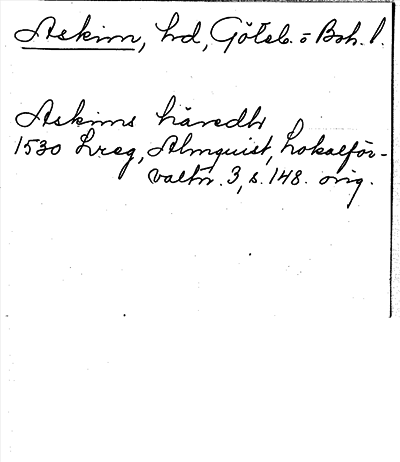 Askim, hd, Göteb. o Boh. l.
Askims häredh
1530 Lreg, Almquist, Lokalför-
valtn. 3, s. 148. orig.